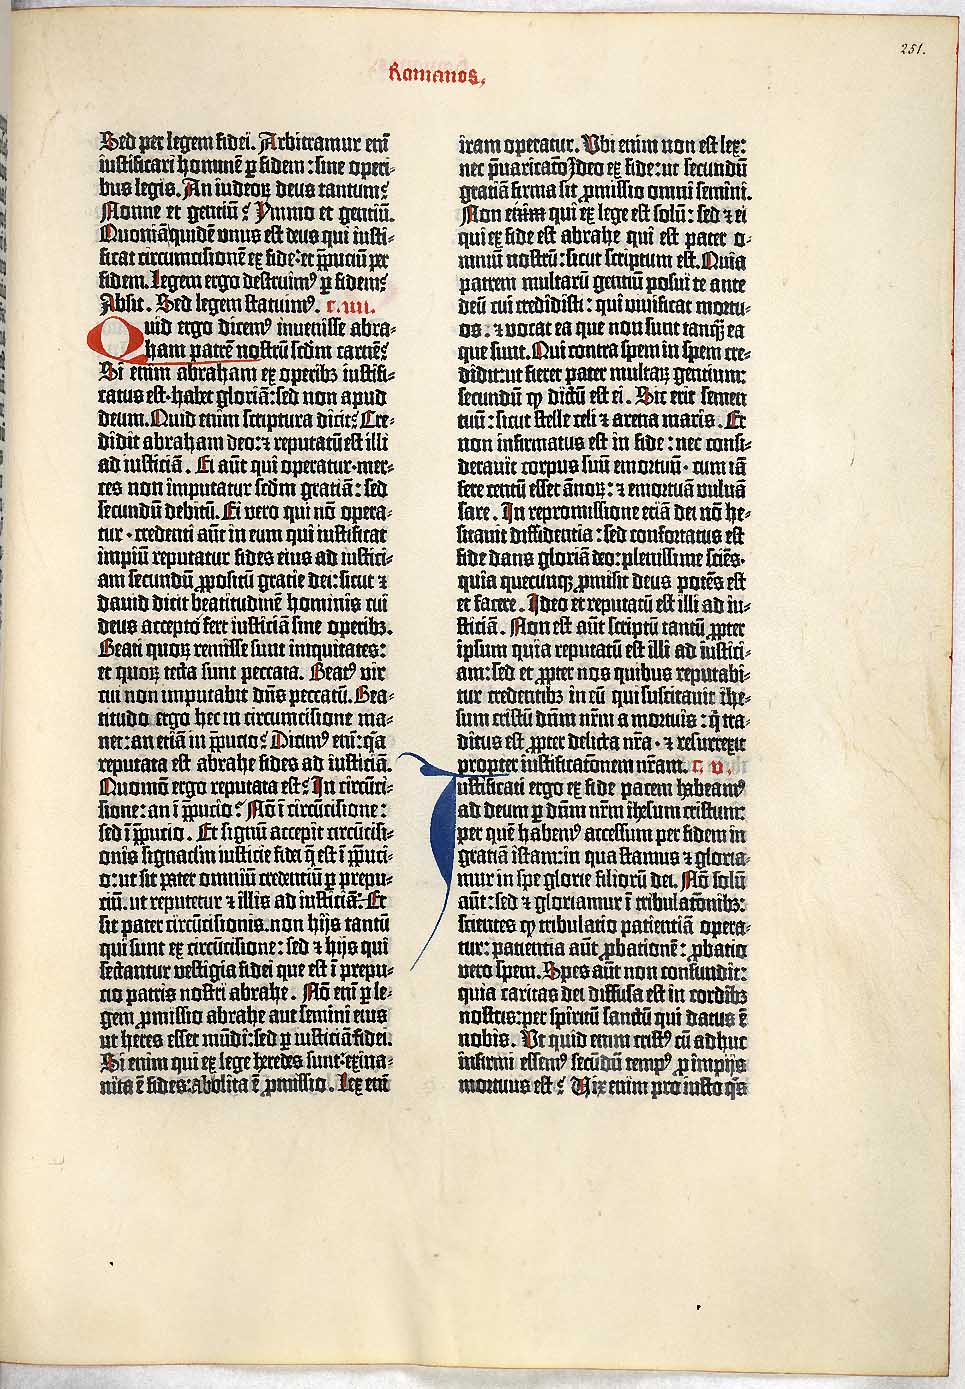 251.
Romanos.
Sed per legem fidei. Arbitramur eni͂
iustificari homine͂ p̲ fidem : sine operi-
bus legis. An iudeoꝝ deus tantum?
Nonne et gentiu͂? Ymmo et gentiu͂.
Quonia͂ quide͂ vnus est deus qui iusti-
ficat circumcisione͂ ex fide : et p̲puciu͂ per
fidem. Legem ergo destruimꝰ p̲ fidem?
Absit. Sed legem statuimꝰ. c. iiii.
Quid ergo dicemꝰ invenisse abra-
ham patre͂ nostru͂ scd̃m carnē?
Si enim abraham ex operibꝫ iustifi-
catus est · habet gloria͂ : sed non apud
deum. Quid enim scriptura dicit? Cre-
didit abraham deo : ⁊ reputatu͂ est illi
ad iusticia͂. Ei au͂t qui operatur · mer-
ces non imputatur scd̃m gratia͂ : sed
secundu͂ debitu͂. Ei vero qui no͂ opera-
tur · credenti au͂t in eum qui iustificat
impiu͂ reputatur fides eius ad iustici-
am secundu͂ ꝓpositu͂ gratie dei : sicut ⁊
david dicit beatitudine͂ hominis cui
deus accepto fert iusticia͂ sine operibꝫ.
Beati quoꝝ remisse sunt iniquitates :
et quoꝝ tecta sunt peccata. Beatꝰ vir
cui non imputabit dn͂s peccatu͂. Bea-
titudo ergo hec in circumcisione ma-
net : an etia͂ in p̲pucio? Dicimꝰ eni͂ : q̃a
reputata est abrahe fides ad iusticia͂.
Quomo͂ ergo reputata est? In circu͂ci-
sione : an i͂ p̲pucio? No͂ i͂ circu͂cisione :
sed i͂ p̲pucio. Et signu͂ accepit circu͂cisi-
onis signaclm̃ iusticie fidei q̃ est i͂ p̲puci-
o : ut sit pater omniu͂ credentiu͂ p̲ prepu-
ciu͂. ut reputetur ⁊ illis ad iusticia͂ : Et
sit pater circu͂cisionis. non hijs tantu͂
qui sunt ex circu͂cisione : sed ⁊ hijs qui
sectantur vestigia fidei que est i͂ prepu-
cio patris nostri abrahe. No͂ eni͂ p̲ le-
gem ꝓmissio abrahe aut semini eius
ut heres esset mu͂di : sed p̲ iusticia͂ fidei.
Si enim qui ex lege heredes sunt : exina-
nita e͂ fides : abolita e͂ ꝓmissio. Lex eni͂
iram operatur. Vbi enim non est lex :
nec p̲uaricatio. Ideo ex fide : ut secundu͂
gratia͂ firma sit ꝓmissio omni semini.
Non enim qui ex lege est solu͂ : sed ⁊ ei
qui ex fide est abrahe qui est pater o-
mniu͂ nostru͂ : sicut scriptum est. Quia
patrem multaru͂ gentiu͂ posui te ante
deu͂ cui credidisti : qui viuificat mortu-
os : ⁊ vocat ea que non sunt tanqꝫ ea
que sunt. Qui contra spem in spem cre-
didit : ut fieret pater multaꝝ gentium :
secundu͂ ꝙ dictu͂ est ei. Sic erit semen
tuu͂ : sicut stelle celi ⁊ arena maris. Et
non infirmatus est in fide : nec consi-
derauit corpus suu͂ emortuu͂ · cum ia͂
fere centu͂ esset a͂noꝝ : ⁊ emortua͂ vuluа͂
sare. In repromissione etia͂ dei no͂ he-
sitauit diffidentia : sed confortatus est
fide dans gloria͂ deo : plenissime scie͂s ·
quia quecunqꝫ ꝓmisit deus pote͂s est
et facere. Ideo et reputatu͂ est illi ad iu-
sticia͂. Non est au͂t scriptu͂ tantu͂ ꝓpter
ipsum quia reputatu͂ est illi ad iustici-
am : sed et ꝓpter nos quibus reputabi-
tur credentibꝫ in eu͂ qui suscitauit ihe-
sum cristu͂ dn͂m nr͂m a mortuis : q̃ tra-
ditus est ꝓpter delicta nr͂a · ⁊ resurrexit
propter iustificato͂nem nr͂am. c. v.
Iustificati ergo ex fide pacem habeamꝰ
ad deum p̲ dn͂m nr͂m ihesum cristum :
per que͂ habemꝰ accessum per fidem in
gratia͂ istam : in qua stamus ⁊ gloria-
mur in spe glorie filioru͂ dei. No͂ solu͂
au͂t : sed ⁊ gloriamur i͂ tribulato͂nibꝫ :
scientes ꝙ tribulatio patientia͂ opera-
tur : patientia au͂t ꝓbatione͂ : ꝓbatio
vero spem. Spes au͂t non confundit :
quia caritas dei diffusa est in cordibꝫ
nostris : per spiritu͂ sanctu͂ qui datus e͂
nobis. Vt quid enim cristꝰ cu͂ adhuc
infirmi essemꝰ secu͂du͂ tempꝰ p̲ impijs
mortuus est? Vix enim pro iusto q̃s